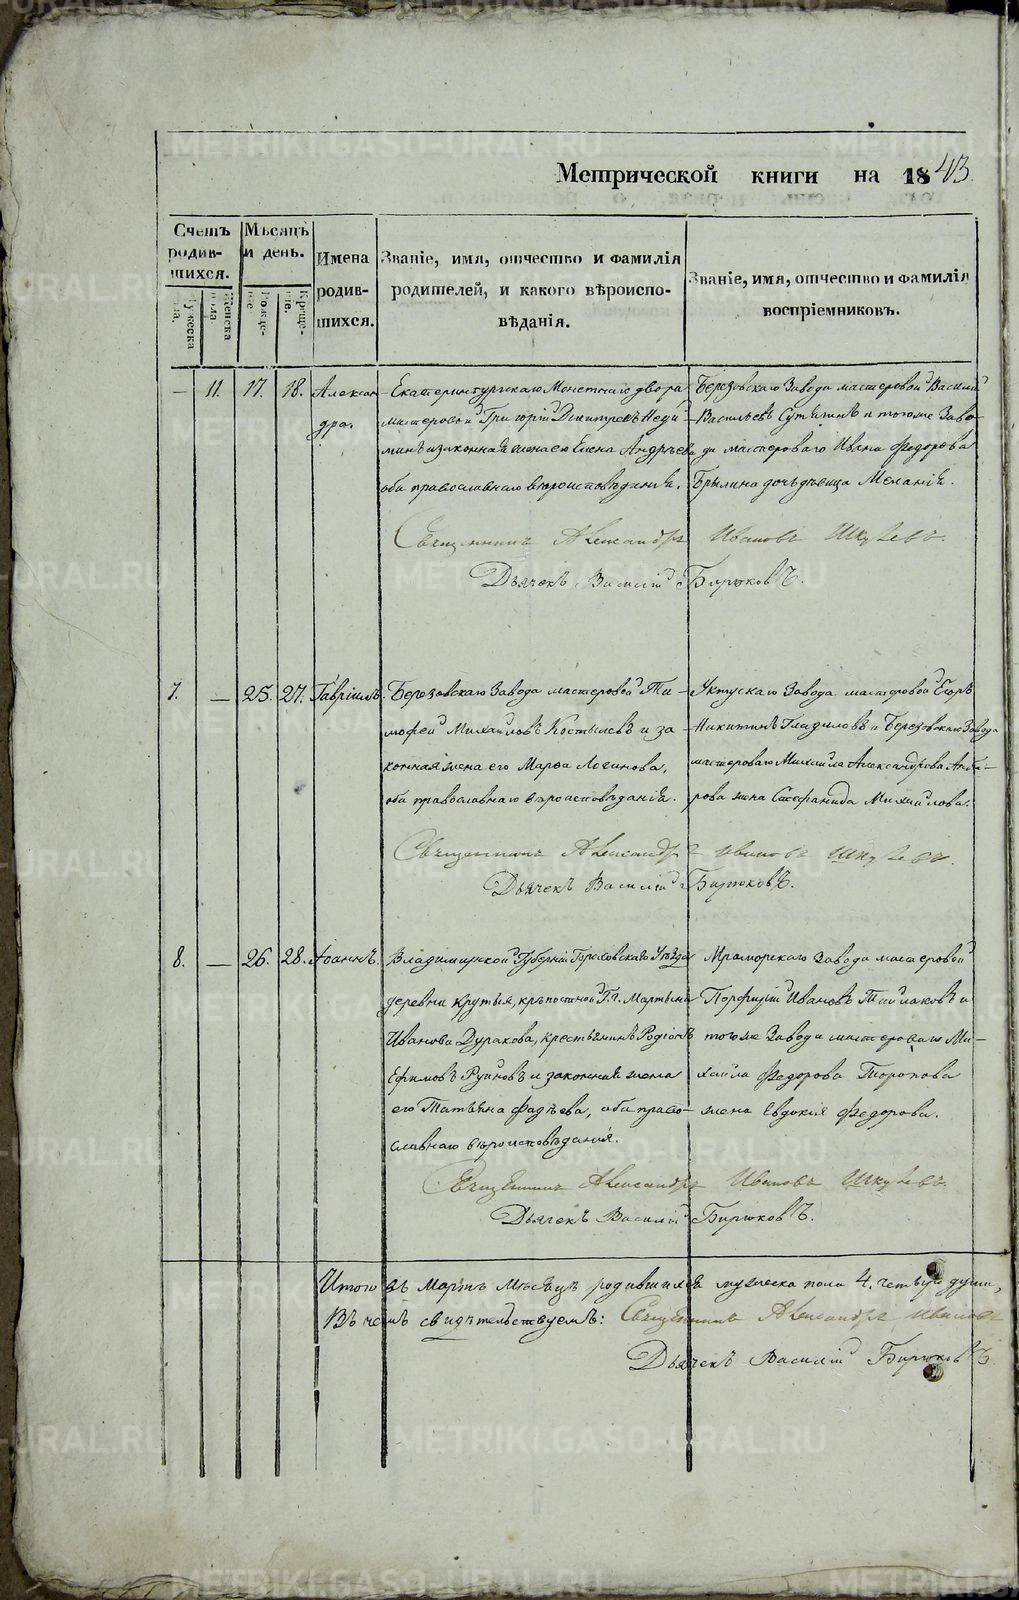 Метрической книги на 1843.
Счетъ родив- шихся.
Мѣсяцъ и день.
Имена родив- шихся.
Званіе, имя, отчество и фамилія родителей, и какого вѣроиспо- вѣданія.
Званіе, имя, отчество и фамилія воспріемниковъ.
— 11. 17. 18. Алексан- Екатеринбургскаго Монетнаго двора Березовскаго Завода мастеровой Василій
дра. мастеровой Григорій Димитріевъ Васильевъ Сутягинъ и тогоже Заво-
и законная жена его Елена Андрѣева да мастероваго Ивана Федорова
оба православнаго вѣроисповѣданія. Брылина дочь дѣвица Меланія.
Священникъ Александръ Ивановъ
Дьячекъ Василій Бирюковъ.
7. — 25. 27. Гавріилъ. Березовскаго Завода мастеровой Ти- Уктускаго Завода мастеровой Егоръ
мофей Михайловъ Костылевъ и за- Никитинъ Гладиловъ и Березовскаго Завода
конная жена его Марѳа Логинова, мастероваго Михаила Александрова
оба православнаго вѣроисповѣданія. рова жена Стефанида Михайлова.
Священникъ Александръ Ивановъ
Дьячекъ Василій Бирюковъ.
8. — 26. 28. Іоаннъ. Владимирской Губерніи Гороховскаго Уѣзда Мраморскаго Завода мастеровой
деревни крутыя, крѣпостной Г. Мартына Порфирій Ивановъ и
Иванова Дуракова, крестьянинъ Родіонъ тогоже Завода мастероваго Ми-
Ефимовъ и законная жена хаила Федорова Торопова
его Татьяна Фадѣева, оба право- жена Евдокія Федорова.
славнаго вѣроисповѣданія.
Священникъ Александръ Ивановъ
Дьячекъ Василій Бирюковъ.
Итого въ Мартѣ Мѣсяцѣ родившихся мужеска пола 4. четыре души,
Въ чемъ свидѣтельствуемъ: Священникъ Александръ Ивановъ
Дьячекъ Василій Бирюковъ
METRIKI.GASO-URAL.RU